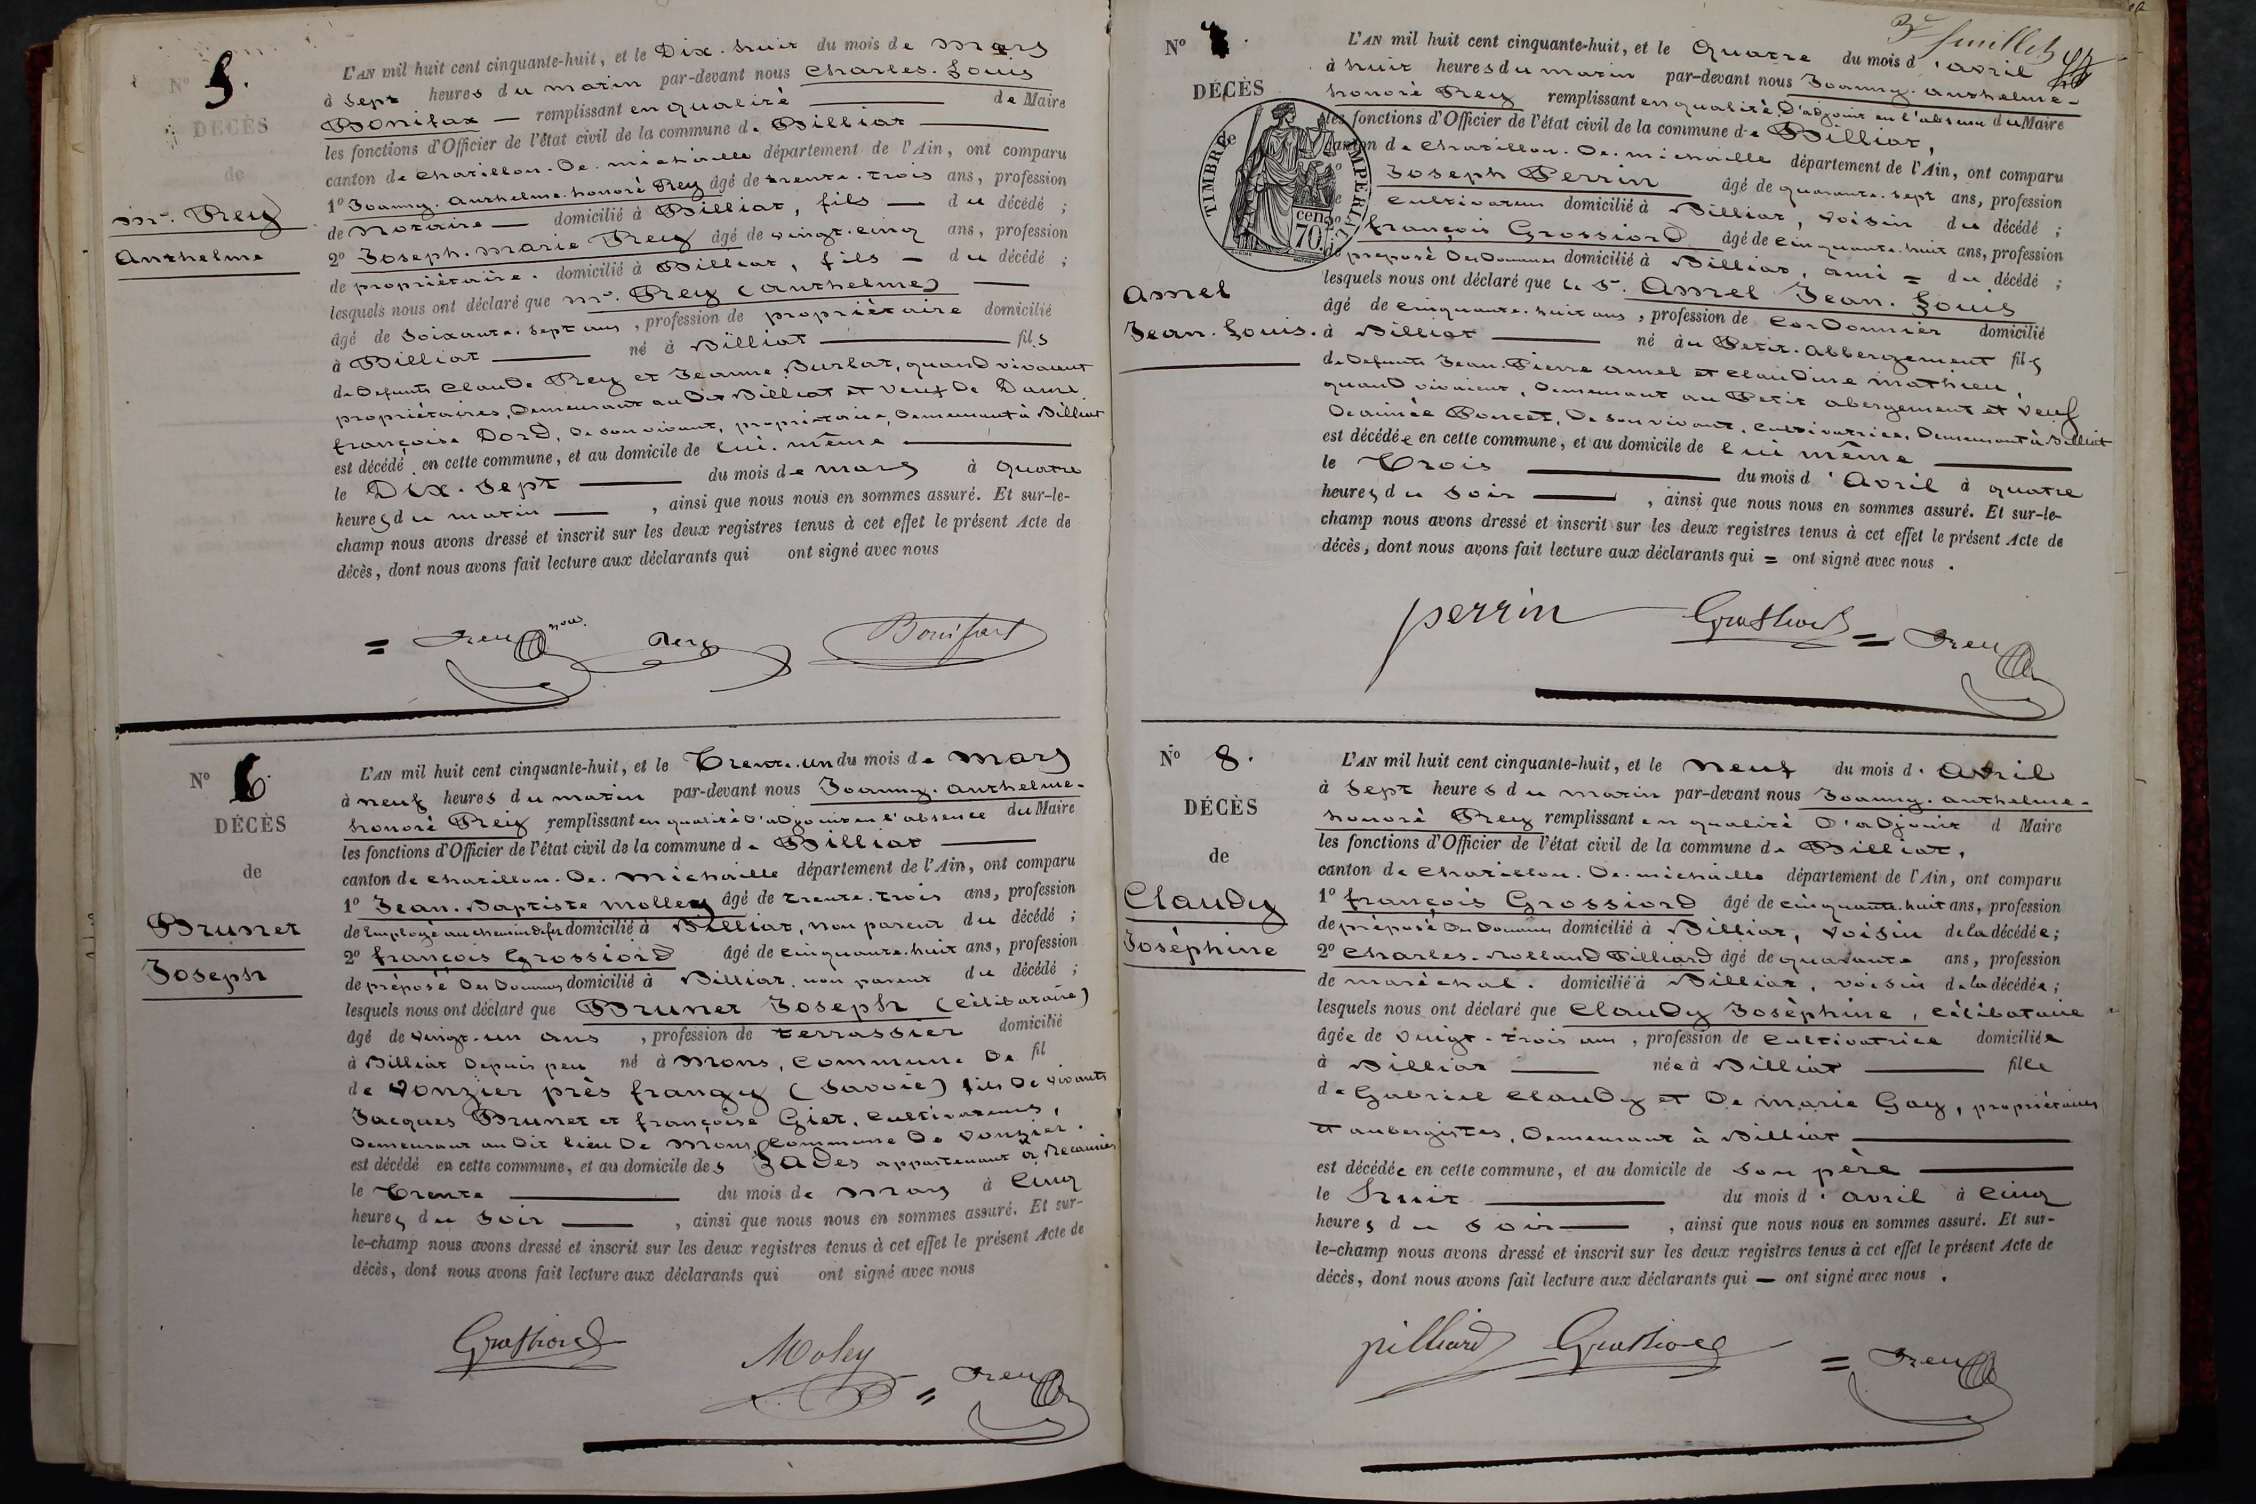 Nº 5.
DÉCÈS
de
Mr. Rey
Anthelme
L'AN mil huit cent cinquante-huit, et le Dix-huit du mois de Mars
à sept heures du matin par-devant nous Charles-Louis
Bonifax — remplissant en qualité — de Maire
les fonctions d'Officier de l'état civil de la commune de Billiat —
canton de Chatillon-De-michaille département de l'Ain, ont comparu
1º Joanny-Anthelme-honoré Rey âgé de trente-trois ans, profession
de Notaire — domicilié à Billiat, fils — du décédé ;
2º Joseph-Marie Rey âgé de vingt-cinq ans, profession
de propriétaire. domicilié à Billiat, fils — du décédé ;
lesquels nous ont déclaré que Mr. Rey (Anthelme) —
âgé de Soixante-sept ans, profession de propriétaire domicilié
à Billiat — né à Billiat — fils
de Defunts Claude Rey et Jeanne Burlat, quand vivaient
propriétaires, Demeurant au Dit Billiat et veuf De Dame
françoise Dord, De son vivant, propriétaire, Demeurant à Billiat
est décédé en cette commune, et au domicile de lui-même —
le Dix-Sept — du mois de mars à quatre
heures du matin — , ainsi que nous nous en sommes assuré. Et sur-le-
champ nous avons dressé et inscrit sur les deux registres tenus à cet effet le présent Acte de
décès, dont nous avons fait lecture aux déclarants qui ont signé avec nous
= Rey Rey Bonifax
Nº 6.
DÉCÈS
de
Brunet
Joseph
L'AN mil huit cent cinquante-huit, et le Trente-un du mois de Mars
à neuf heures du matin par-devant nous Joanny-Anthelme-
honoré Rey remplissant en qualité D'adjoint en l'absence du Maire
les fonctions d'Officier de l'état civil de la commune de Billiat —
canton de Chatillon-De-Michaille département de l'Ain, ont comparu
1º Jean-Baptiste Molley âgé de trente-trois ans, profession
de Employé au chemin de fer domicilié à Billiat, non parent du décédé ;
2º françois Grossiord âgé de cinquante-huit ans, profession
de préposé Des Douanes domicilié à Billiat, non parent du décédé ;
lesquels nous ont déclaré que Brunet Joseph (Célibataire)
âgé de vingt-un ans , profession de terrassier domicilié
à Billiat Depuis peu né à Mons, Commune De fil
de Vonzier près frangy (Savoie) fils De vivants
Jacques Brunet et françoise Giet, cultivateurs,
Demeurant au Dit lieu De Mons, Commune De Vonzier.
est décédé en cette commune, et au domicile des Lades appartenant à
le Trente — du mois de Mars à Cinq
heures du Soir — , ainsi que nous nous en sommes assuré. Et sur-
le-champ nous avons dressé et inscrit sur les deux registres tenus à cet effet le présent Acte de
décès, dont nous avons fait lecture aux déclarants qui ont signé avec nous
Grossiord Moley = Rey
3e feuillet
Nº
DÉCÈS
TIMBRE IMPERIAL
70 cen.
Amel
Jean-Louis.
L'AN mil huit cent cinquante-huit, et le Quatre du mois d'avril
à huit heures du matin par-devant nous Joanny-Anthelme-
honoré Rey remplissant en qualité D'adjoint en l'absence du Maire
les fonctions d'Officier de l'état civil de la commune de Billiat,
canton de Chatillon-De-michaille département de l'Ain, ont comparu
Joseph Perrin âgé de quarante-sept ans, profession
cultivateur domicilié à Billiat, voisin du décédé ;
françois Grossiord âgé de cinquante-huit ans, profession
de preposé Des Douanes domicilié à Billiat, ami = du décédé ;
lesquels nous ont déclaré que le Sr. Amel Jean-Louis
âgé de cinquante-huit ans, profession de CorDonnier domicilié
à Billiat — né au Petit-Abbergement fils
de Defunts Jean-Pierre Amel et Claudine Mathieu,
quand vivaient, Demeurant au Petit abergement et veuf
De aimée Poncet, De son vivant, cultivatrice, Demeurant à Billiat
est décédé en cette commune, et au domicile de lui même —
le Trois — du mois d'Avril à quatre
heures du Soir — , ainsi que nous nous en sommes assuré. Et sur-le-
champ nous avons dressé et inscrit sur les deux registres tenus à cet effet le présent Acte de
décès, dont nous avons fait lecture aux déclarants qui = ont signé avec nous .
perrin Grossiord = Rey
Nº 8.
DÉCÈS
de
Claudy
Joséphine
L'AN mil huit cent cinquante-huit, et le Neuf du mois d'Avril
à Sept heures du matin par-devant nous Joanny-Anthelme-
honoré Rey remplissant en qualité D'aDjoint d Maire
les fonctions d'Officier de l'état civil de la commune de Billiat,
canton de Chatillon-De-michaille département de l'Ain, ont comparu
1º françois Grossiord âgé de cinquante-huit ans, profession
de préposé Des Douanes domicilié à Billiat, voisin de la décédée ;
2º Charles-Rolland Pilliard âgé de quarante ans, profession
de maréchal. domicilié à Billiat, voisin de la décédée ;
lesquels nous ont déclaré que Claudy Joséphine, célibataire
âgée de vingt-trois ans, profession de cultivatrice domiciliée
à Billiat — née à Billiat — fille
de Gabriel Claudy et De Marie Gay, propriétaires
et aubergistes, Demeurant à Billiat —
est décédée en cette commune, et au domicile de Son père —
le huit — du mois d'avril à Cinq
heures du soir — , ainsi que nous nous en sommes assuré. Et sur-
le-champ nous avons dressé et inscrit sur les deux registres tenus à cet effet le présent Acte de
décès, dont nous avons fait lecture aux déclarants qui — ont signé avec nous .
pilliard Grossiord = Rey